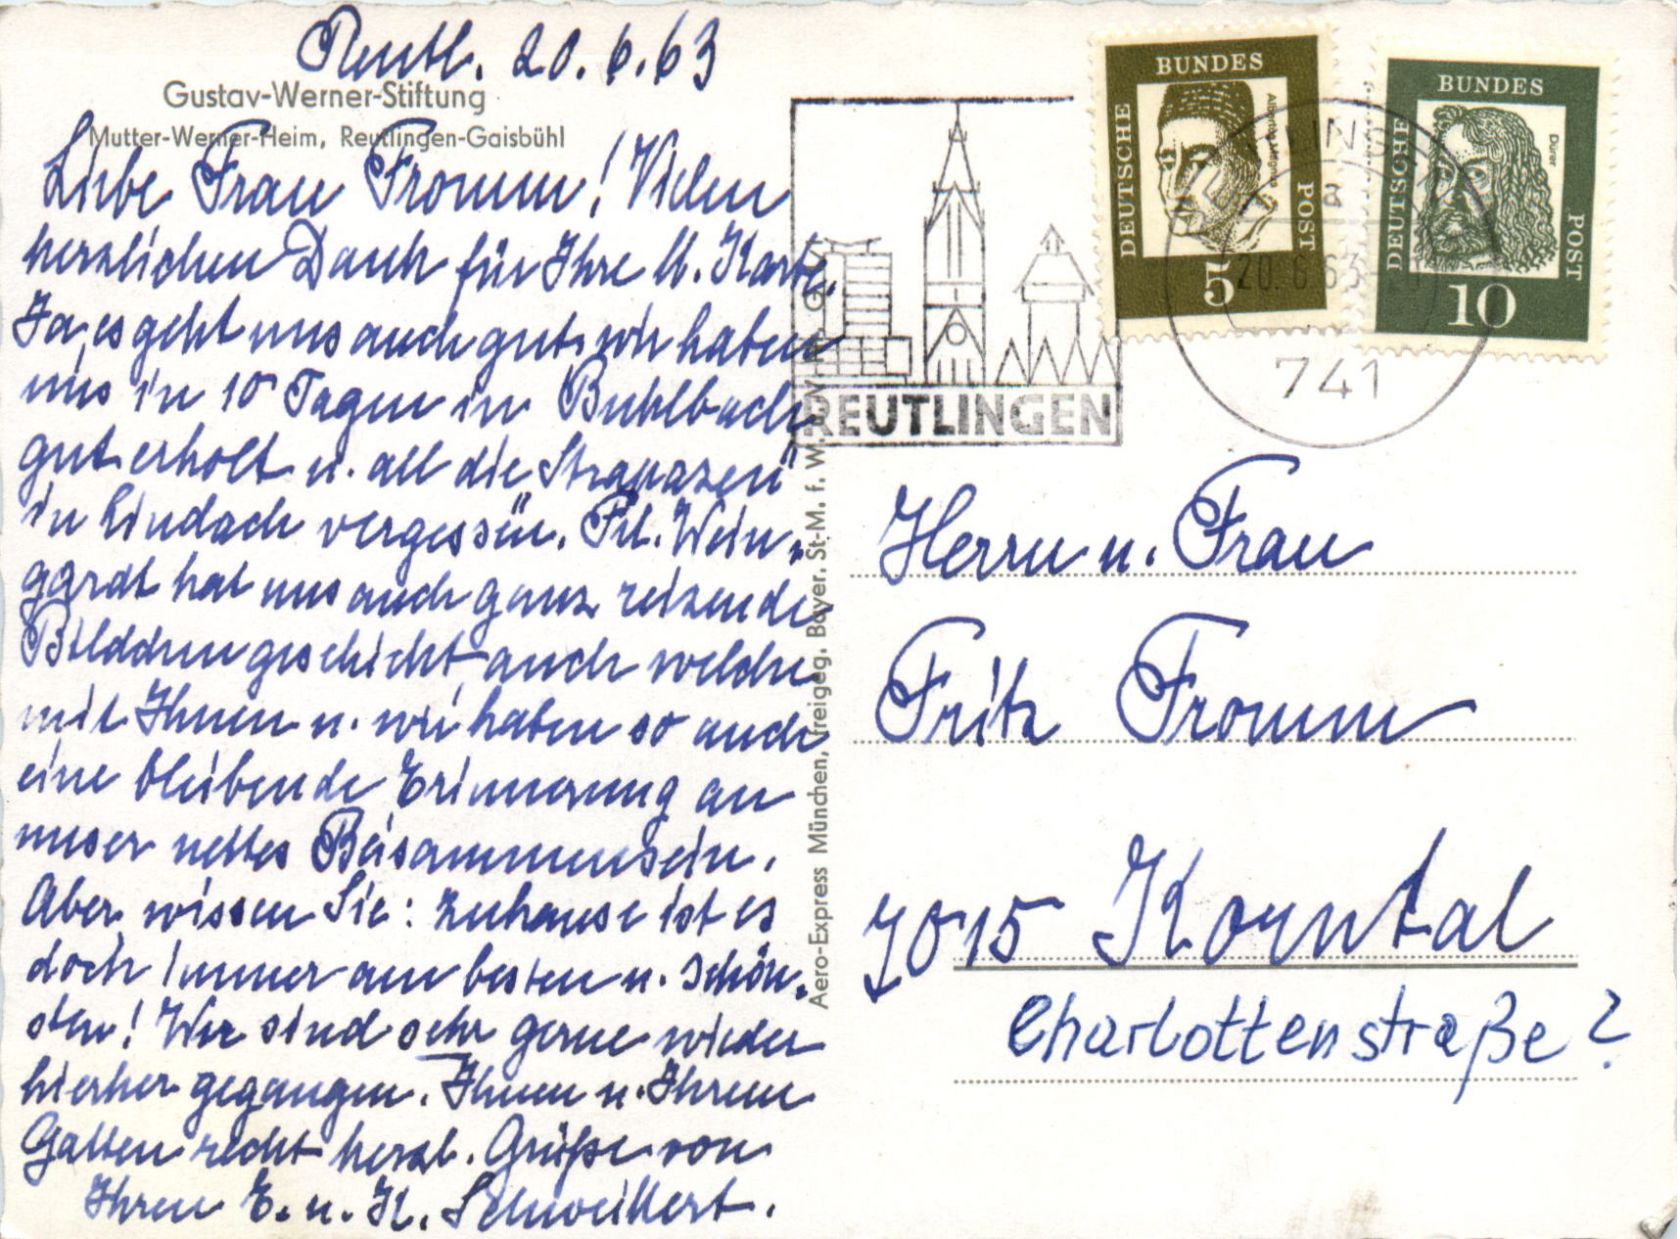 Reutl. 20.6.63
Gustav-Werner-Stiftung
Mutter-Werner-Heim, Reutlingen-Gaisbühl
Liebe Frau Fromm! Vielen
herzlichen Dank für Ihre lb. Karte.
Ja, es geht uns auch gut, wir haben
uns in 10 Tagen in Buhlbach
gut erholt u. all die Strapazen
in Lindach vergessen. Frl. Wein-
gardt hat uns auch ganz reizende
Bildchen geschickt, auch welche
mit Ihnen u. wir haben so auch
eine bleibende Erinnerung an
unser nettes Beisammensein.
Aber wissen Sie: zuhause ist es
doch immer am besten u. schön-
sten! Wir sind sehr gerne wieder
hierher gegangen. Ihnen u. Ihrem
Gatten recht herzl. Grüße von
Ihren E. u. K. Schweikert.
Aero-Express München, freigeg. Bayer. St-M. f. W. u. V.
REUTLINGEN
DEUTSCHE
BUNDES
POST
Albertus Magnus
5
DEUTSCHE
BUNDES
POST
Dürer
10
a
20.6.63
741
Herrn u. Frau
Fritz Fromm
7015 Korntal
Charlottenstraße ?